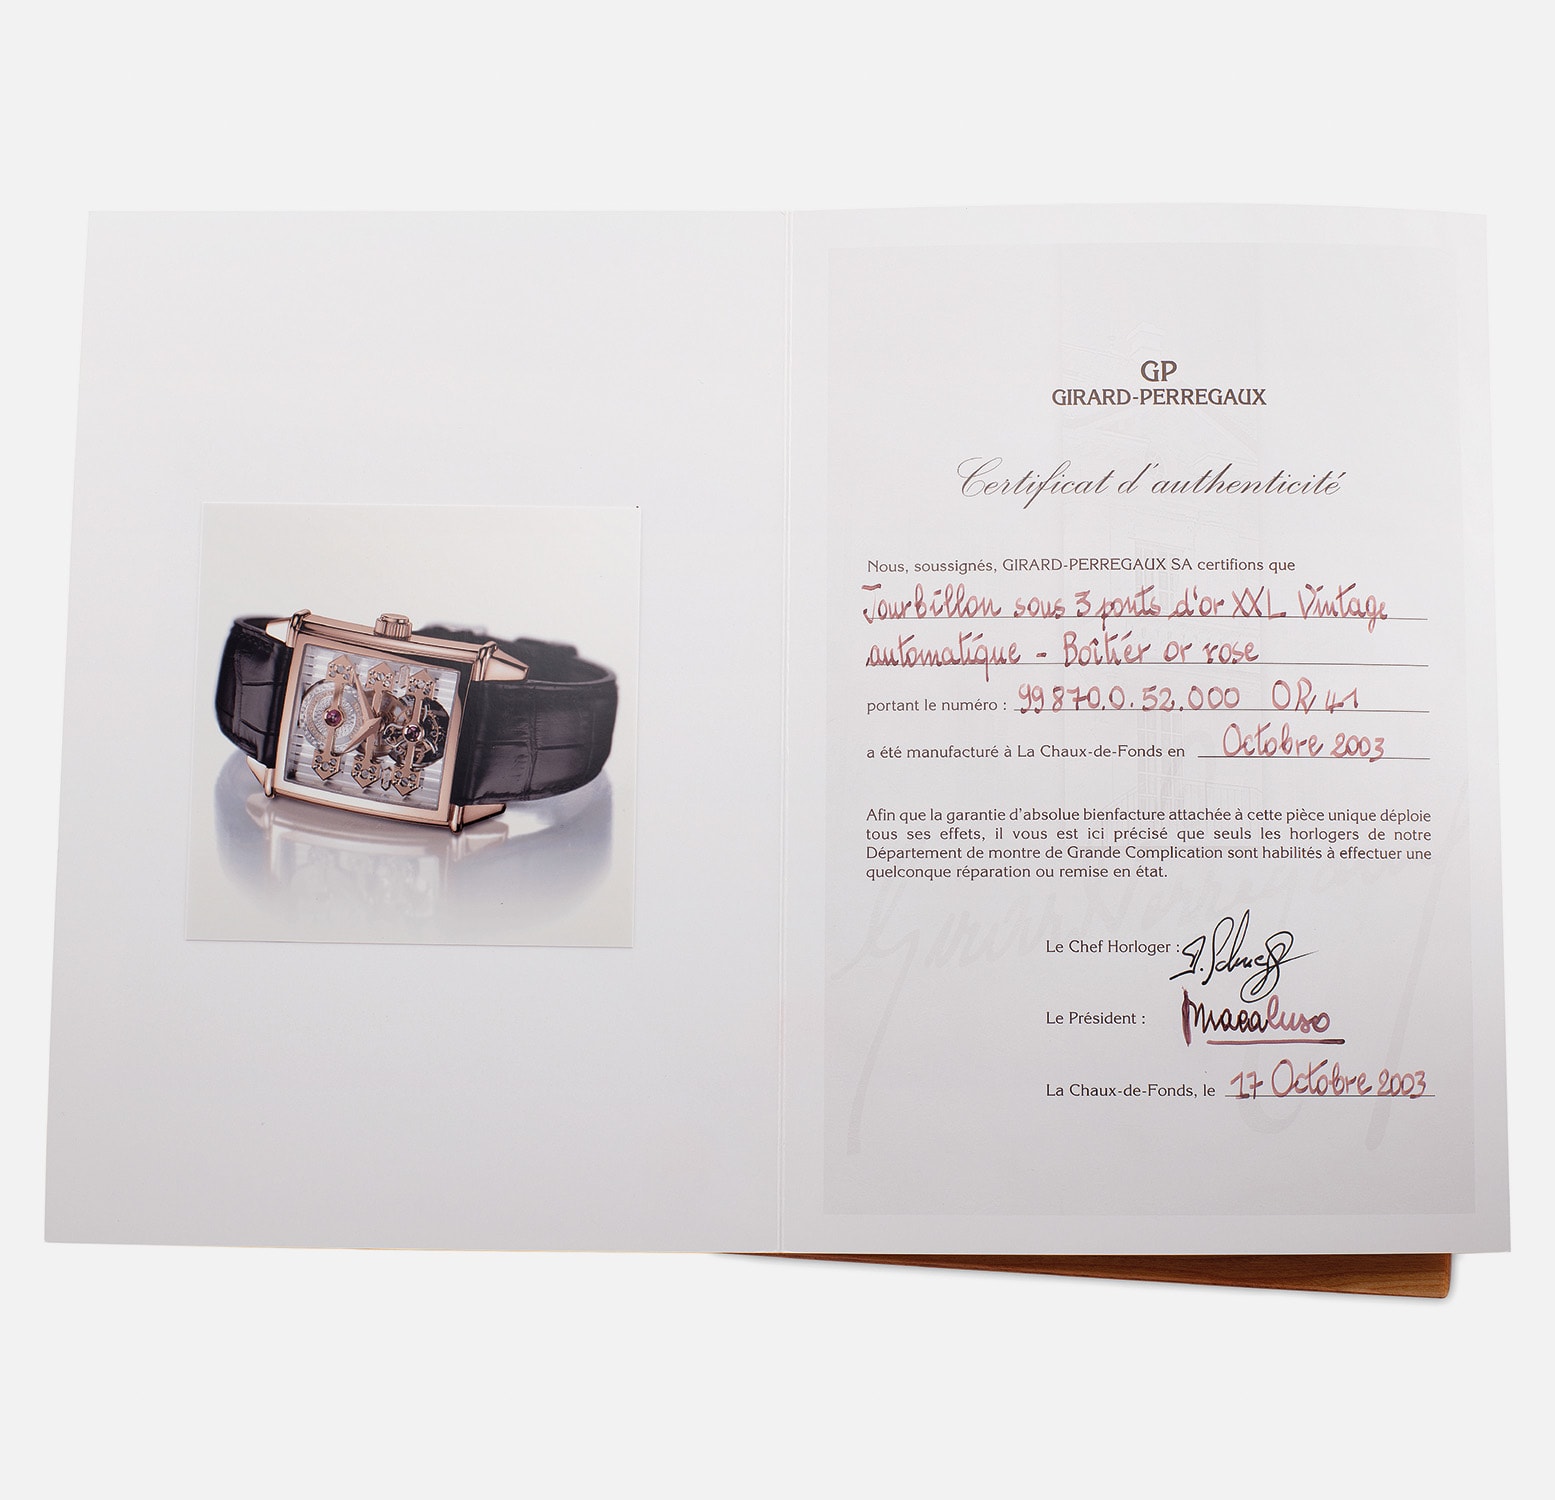 GP
GIRARD-PERREGAUX
Certificat d'authenticité
Nous, soussignés, GIRARD-PERREGAUX SA certifions que
Tourbillon sous 3 ponts d'or XXL Vintage
automatique - Boîtier or rose
portant le numéro : 99870.0.52.000 OR 41
a été manufacturé à La Chaux-de-Fonds en Octobre 2003
Afin que la garantie d'absolue bienfacture attachée à cette pièce unique déploie
tous ses effets, il vous est ici précisé que seuls les horlogers de notre
Département de montre de Grande Complication sont habilités à effectuer une
quelconque réparation ou remise en état.
Le Chef Horloger :
Le Président : Macaluso
La Chaux-de-Fonds, le 17 Octobre 2003
Girard Perregaux